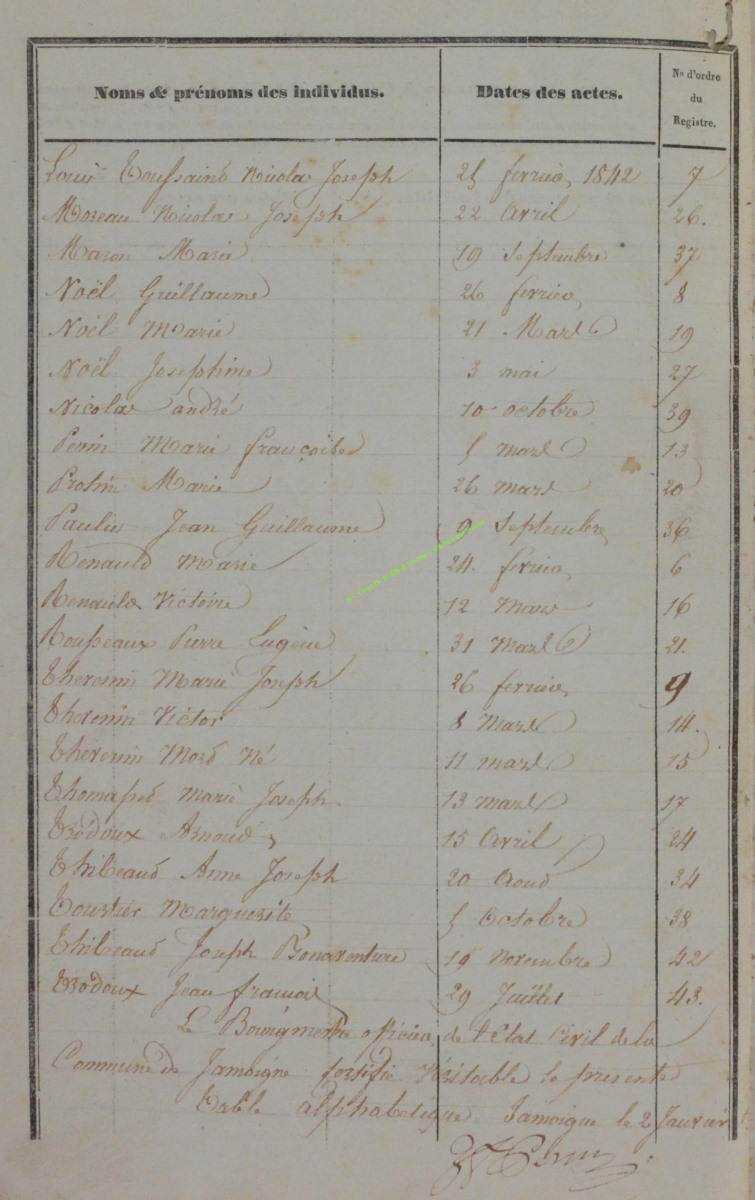 Noms & prénoms des individus. Dates des actes. No d'ordre du Registre.
Louis Toussaint Nicolas Joseph 25 fevrier 1842 7
Moreau Nicolas Joseph 22 Avril 26.
Maron Marie 19 Septembre 37
Noël Guillaume 26 fevrier 8
Noël Marie 21 Mars 19
Noël Josephine 3 mai 27
Nicolas André 10 octobre 39
Perin Marie françoise 5 mars 13
Protin Marie 26 mars 20
Paulin Jean Guillaume 9 Septembre 36
Renauld Marie 24. fevrier 6
Renauld Victoire 12 Mars 16
Rousseaux Pierre Eugène 31 Mars 21.
Theremin Marie Joseph 26 fevrier 9
Theremin Victor 8 Mars 14.
Theremin Mord Né 11 mars 15
Thomassed Marie Joseph 13 mars 17
Trodoux Arnoud 15 Avril 24
Thibeaud Anne Joseph 20 Aoud 34
Marguerite 5 Octobre 38
Thibeaud Joseph Bonaventure 19 Novembre 42
Trodoux Jean francois 29 Juillet 43.
Le Bourgmestre officier de l'Etat Civil de la
Commune de Jamoigne Véritable le présente
Table alphabetique Jamoigne le 2 Janvier